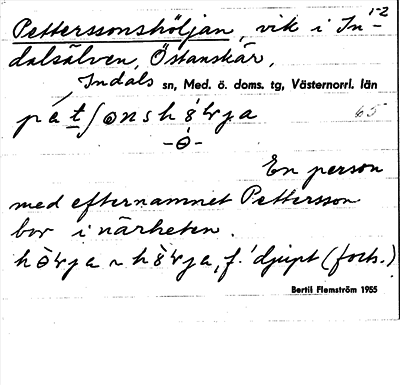 Petterssonshöljan, vik i In- 1-2
dalsälven, Östanskär,
Indals sn, Med. ö. doms. tg, Västernorrl. län
65
-ò-
En person
med efternamnet Pettersson
bor i närheten.
f. 'djupt (forts.)
Bertil Flemström 1955